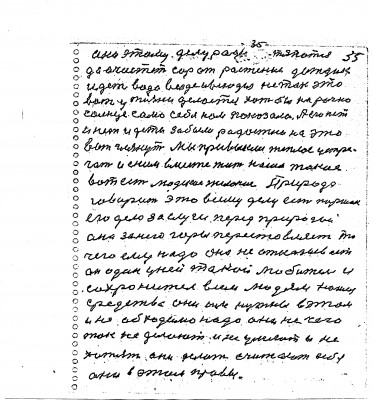 35
она этому делу рады 35
да очистет сорот растение дождик
идет вода везде не так это
вот у жизни делается хотбы нарочно
солнце само себя нам показала. А его нет
и нет и дети забыли радостно на это
вот глянут Мы привыкли теплое
и с ним вместе жит наша такая
вот ест людское Природа
говорит это всему делу ест
его дело заслуги перед природой
она за него горы переставляет то
чего ему надо она не отказывает
он один у ней такой любимец и
сохранител всем людям наши
средства они им нужны в этом
и не обходимо надо они не чего
так не делают и не умеют и не
хотят они делат считает себя
они в этом правы.